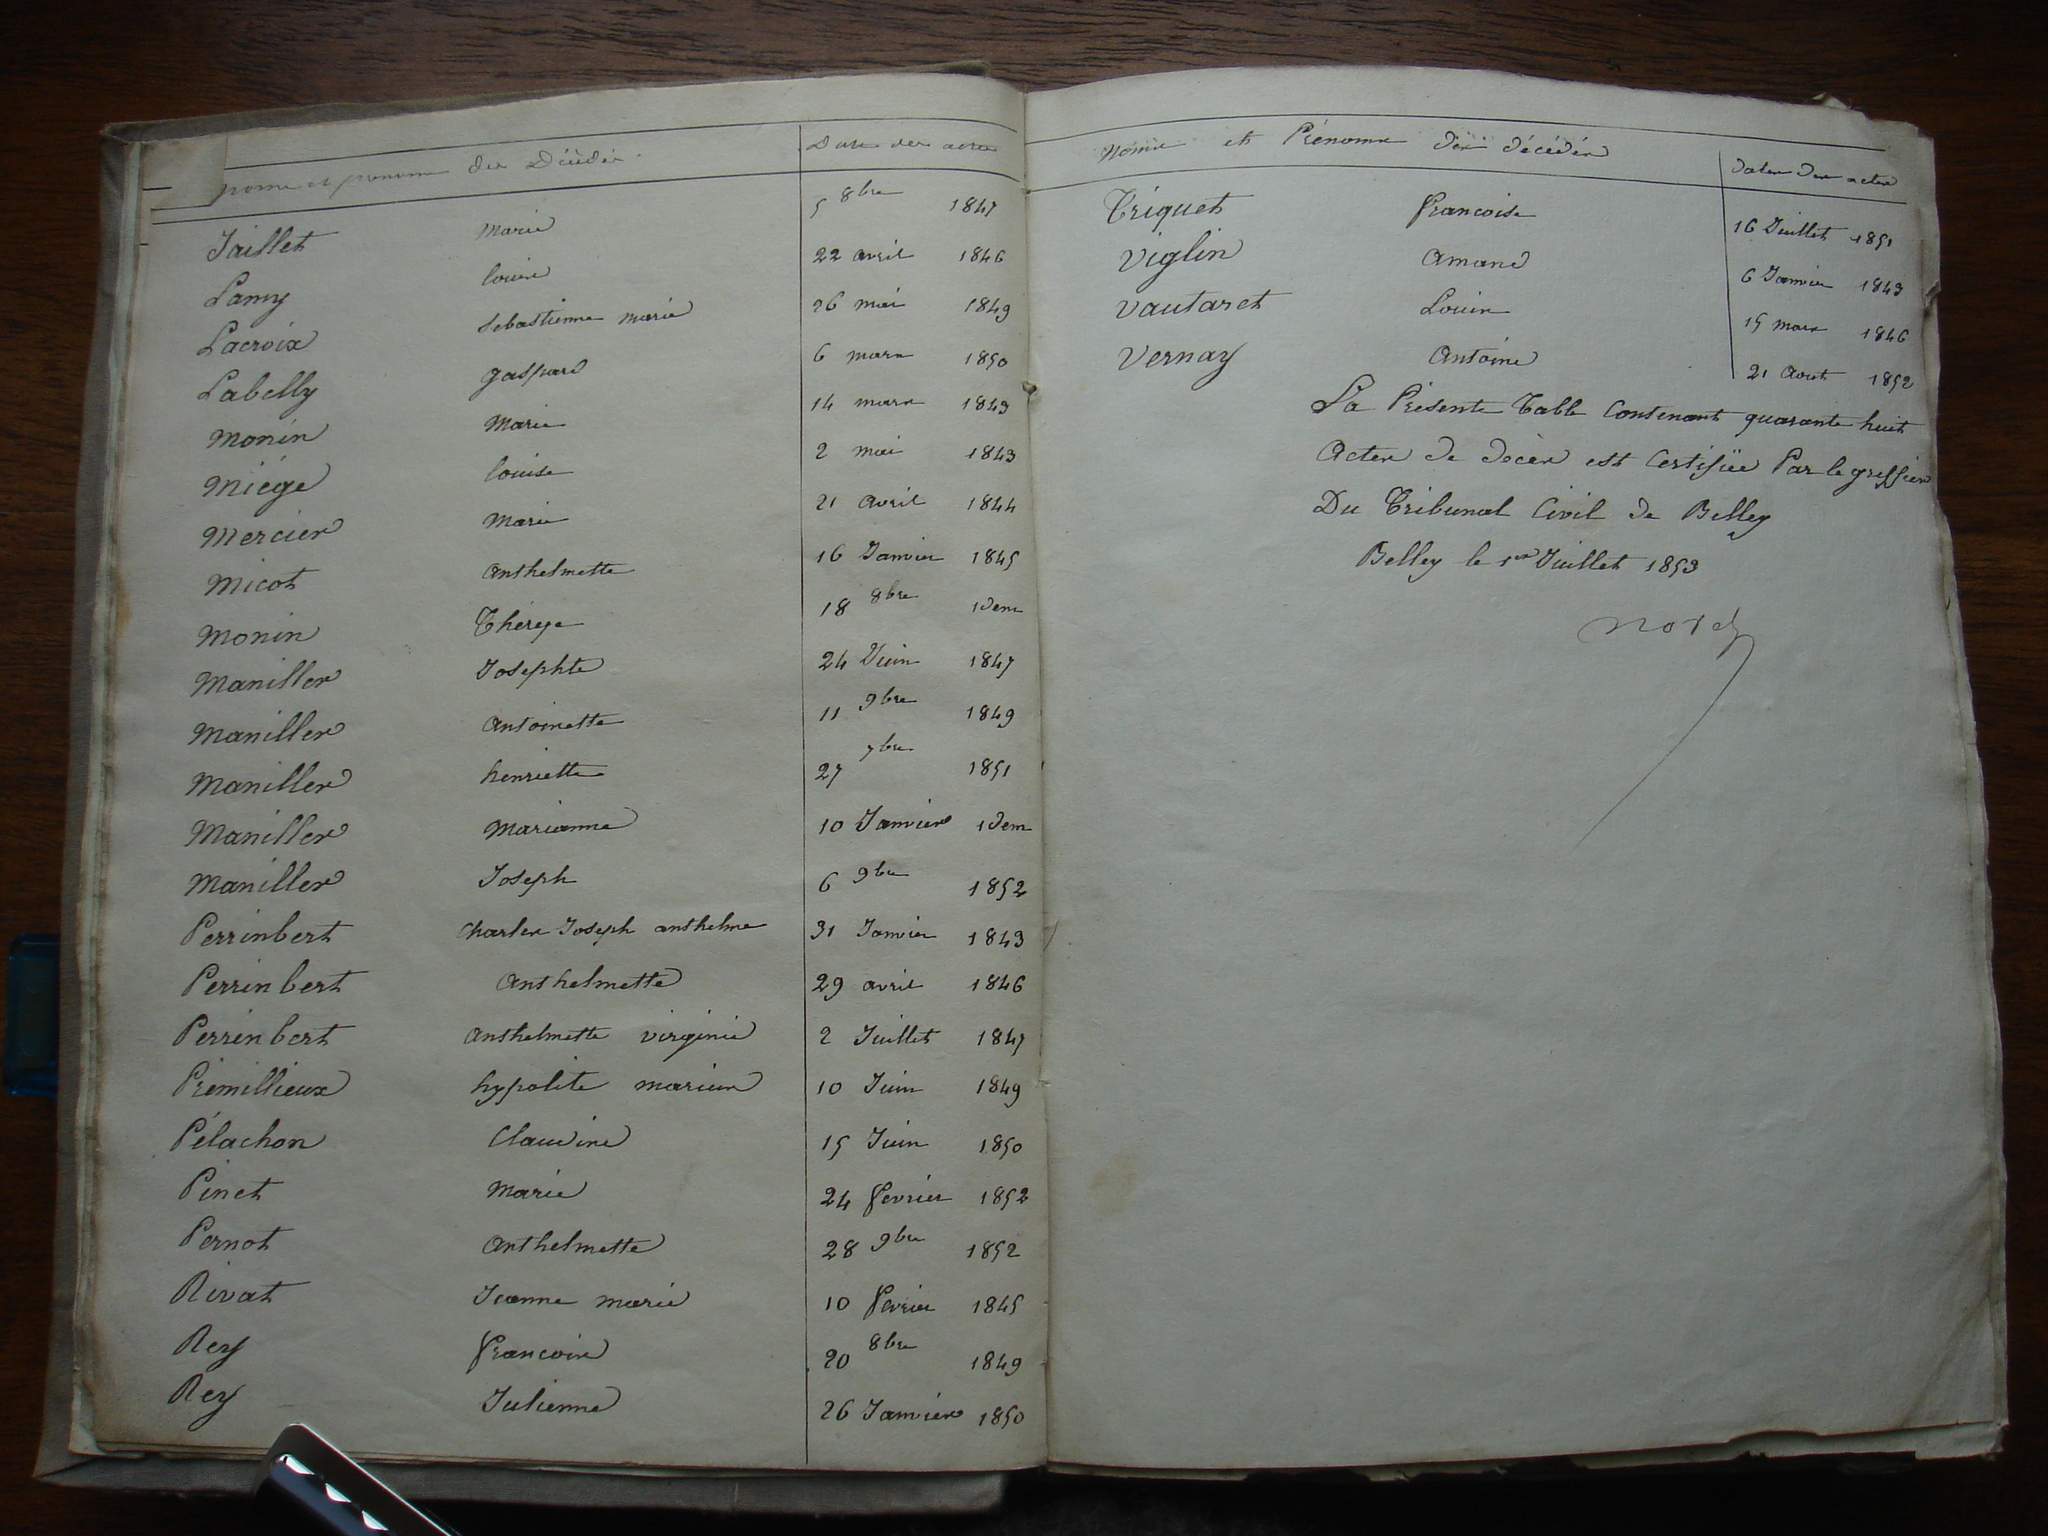 noms et prenoms des Décédés Date des actes
Jaillet marie 5 8bre 1847
Lamy louise 22 avril 1846
Lacroix Sebastienne marie 26 mai 1849
Labelly gaspard 6 mars 1850
monin marie 14 mars 1843
miège louise 2 mai 1843
mercier marie 21 avril 1844
micot anthelmette 16 Janvier 1845
monin Thérèse 18 8bre idem
maniller Josephte 24 Juin 1847
maniller antoinette 11 9bre 1849
maniller henriette 27 7bre 1851
maniller marianne 10 Janvier idem
maniller Joseph 6 9bre 1852
Perrinbert Charles Joseph anthelme 31 Janvier 1843
Perrinbert anthelmette 29 avril 1846
Perrinbert anthelmette virginie 2 Juillet 1847
Prémillieux hypolite marius 10 Juin 1849
Pélachon Claudine 15 Juin 1850
Pinet marie 24 fevrier 1852
Pernot anthelmette 28 9bre 1852
Rivat Jeanne marie 10 fevrier 1845
Rey francois 20 8bre 1849
Rey Julienne 26 Janvier 1850
Noms et Prénoms des décédés dates des actes
Triquet francoise 16 Juillet 1851
Viglin amand 6 Janvier 1843
Vautaret Louis 15 mars 1846
Vernay antoine 21 Aout 1852
La Présente Table Contenant quarante huit
Actes de décès est Certifiée Par le greffier
Du Tribunal Civil de Belley
Belley le 1er Juillet 1853